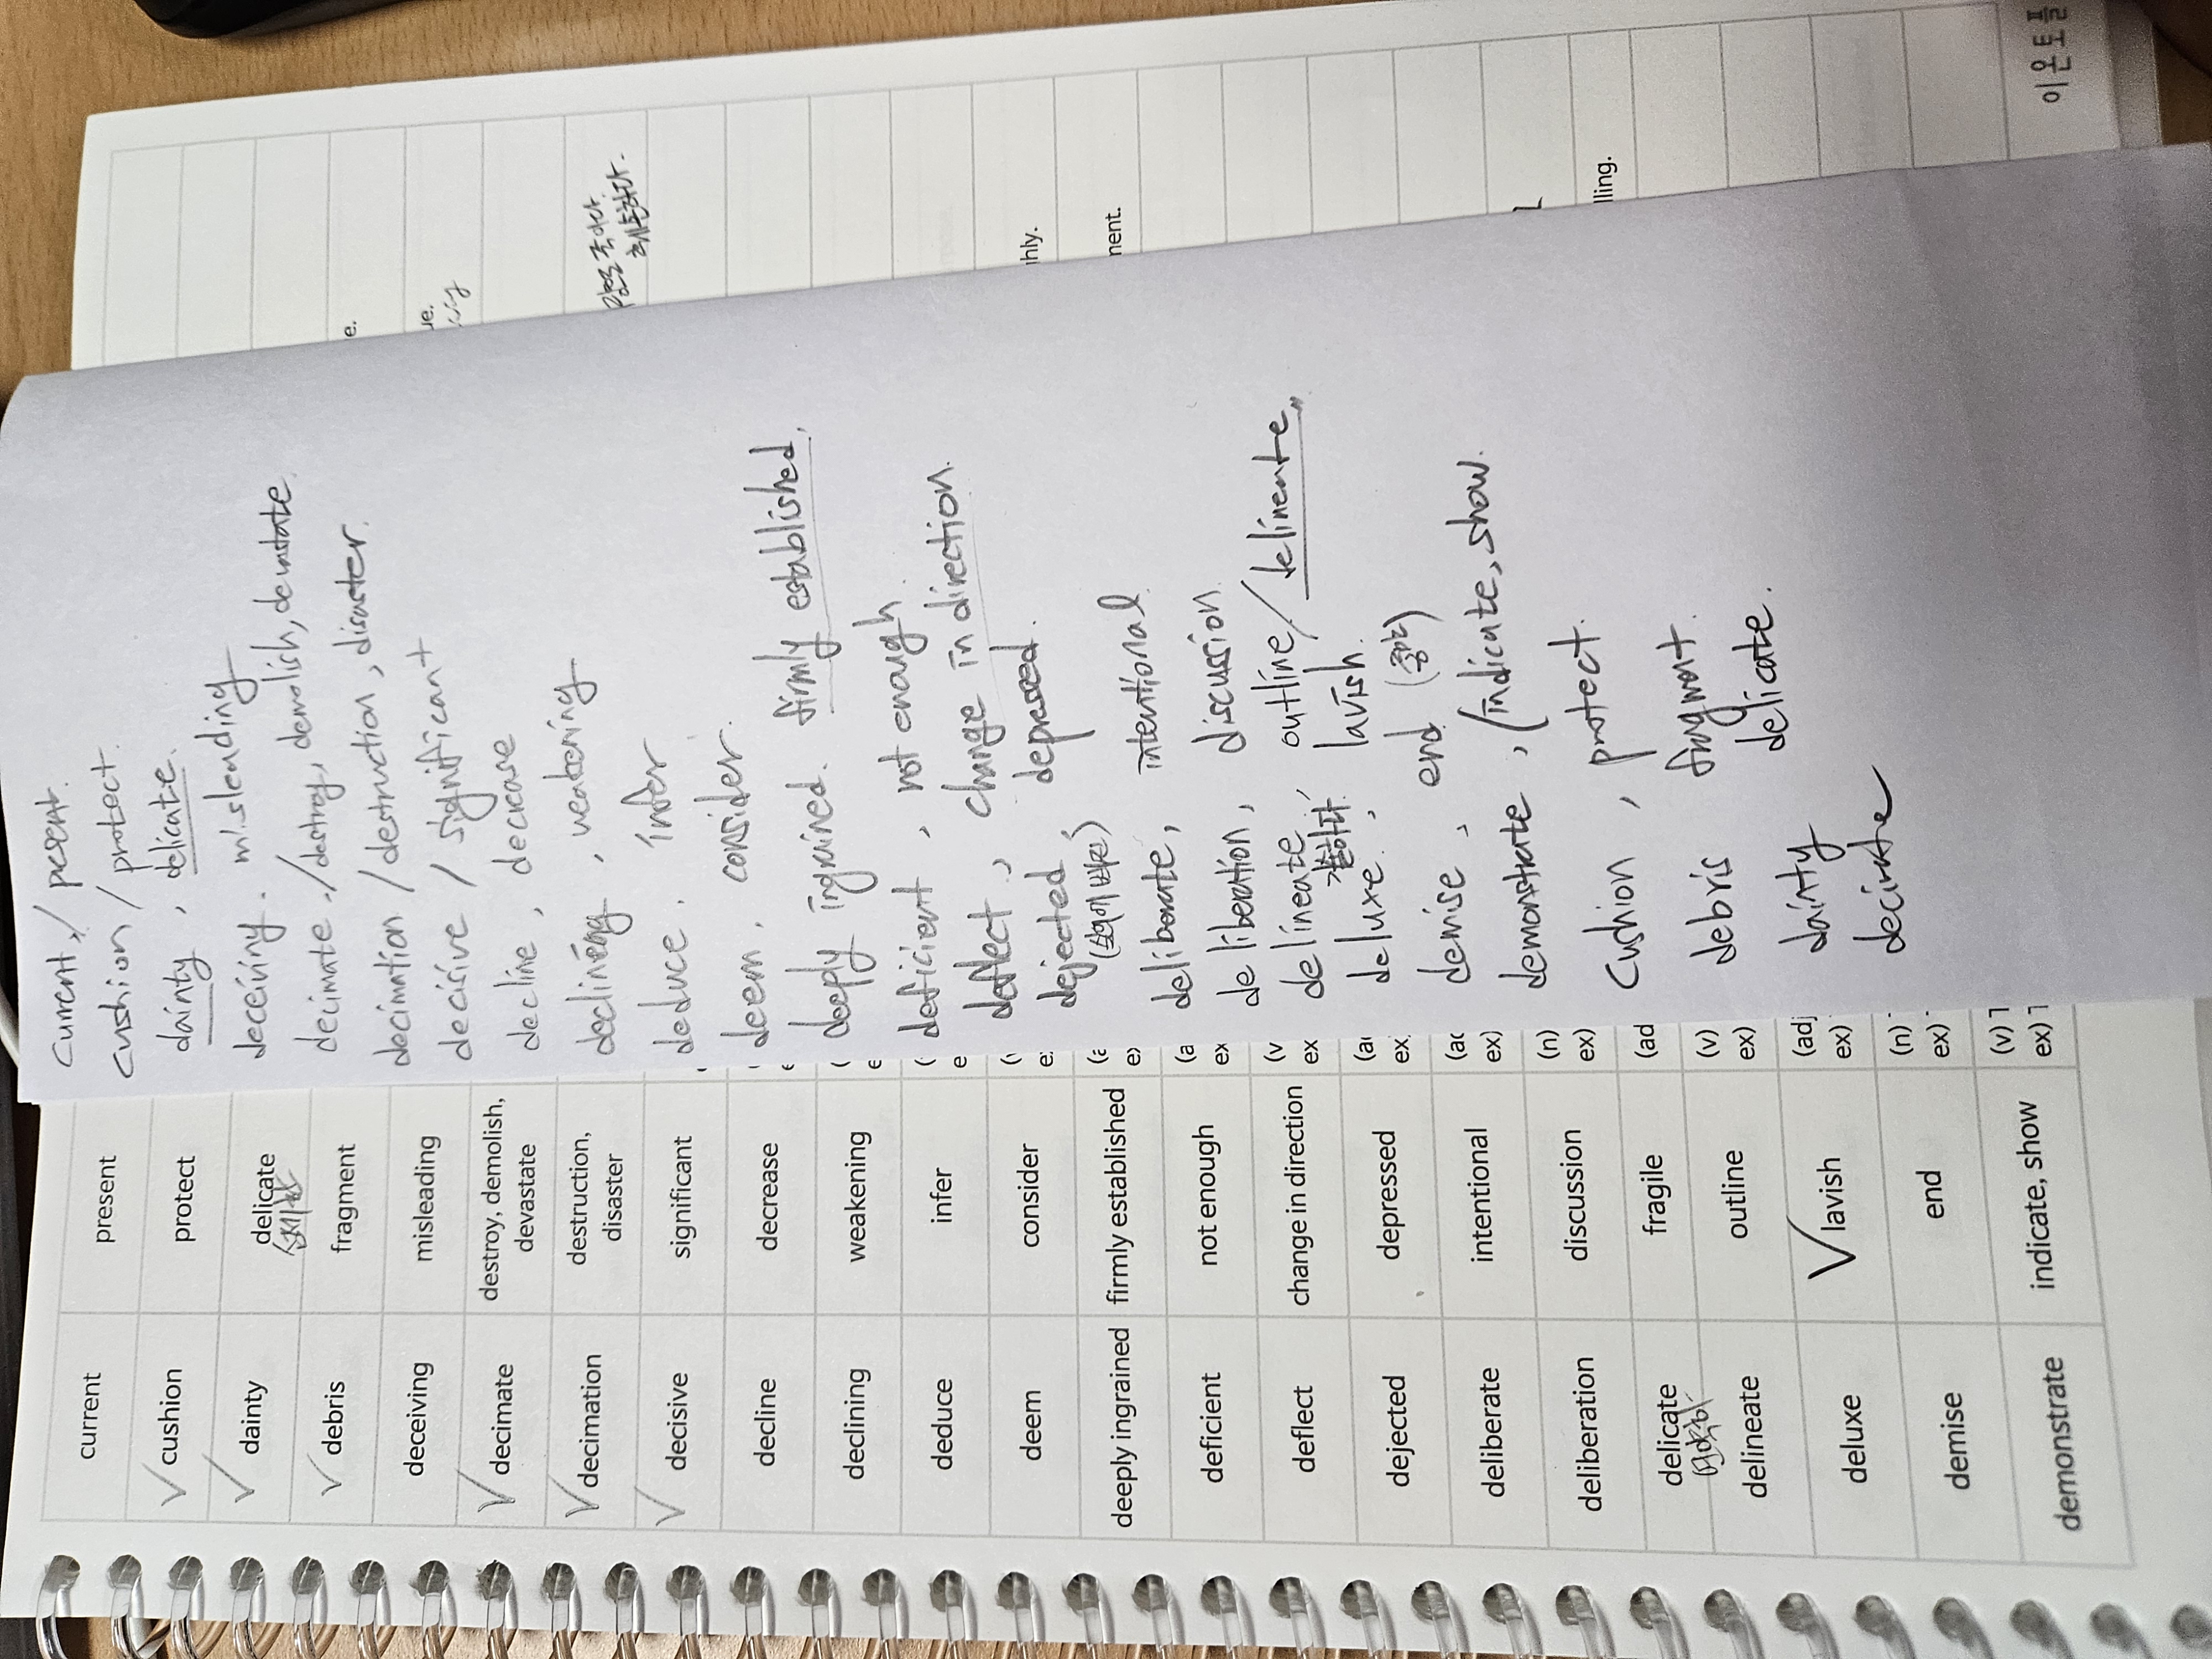 current present
cushion protect
dainty delicate
섬세한
debris fragment
deceiving misleading
decimate destroy, demolish, devastate
decimation destruction, disaster
decisive significant
decline decrease
declining weakening
deduce infer
deem consider
deeply ingrained firmly established
deficient not enough
deflect change in direction
dejected depressed
deliberate intentional
deliberation discussion
delicate fragile
delineate outline
deluxe lavish
demise end
demonstrate indicate, show
(a
ex
(v
ex
ex)
(n)
ex)
(ad
(v)
ex)
(adj
ex)
(n)
ex)
(v)
ex)
current / present.
cushion / protect.
dainty, delicate.
deceiving. misleading
decimate / destroy, demolish, devastate.
decimation / destruction, disaster.
decisive / significant
decline, decrease
declining, weakening
deduce. infer
deem. consider.
deeply ingrained. firmly established.
deficient, not enough.
deflect, change in direction.
dejected depressed.
deliberate, intentional.
deliberation, discussion.
delineate, outline / delineate
deluxe, lavish.
demise, end
demonstrate, (indicate, show.
cushion, protect.
debris fragment.
dainty delicate.
decimate
e.
ue.
hly.
ment.
lling.
이온토플